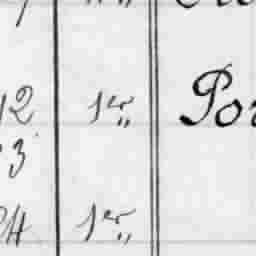 12 1er Por
3
24 1er